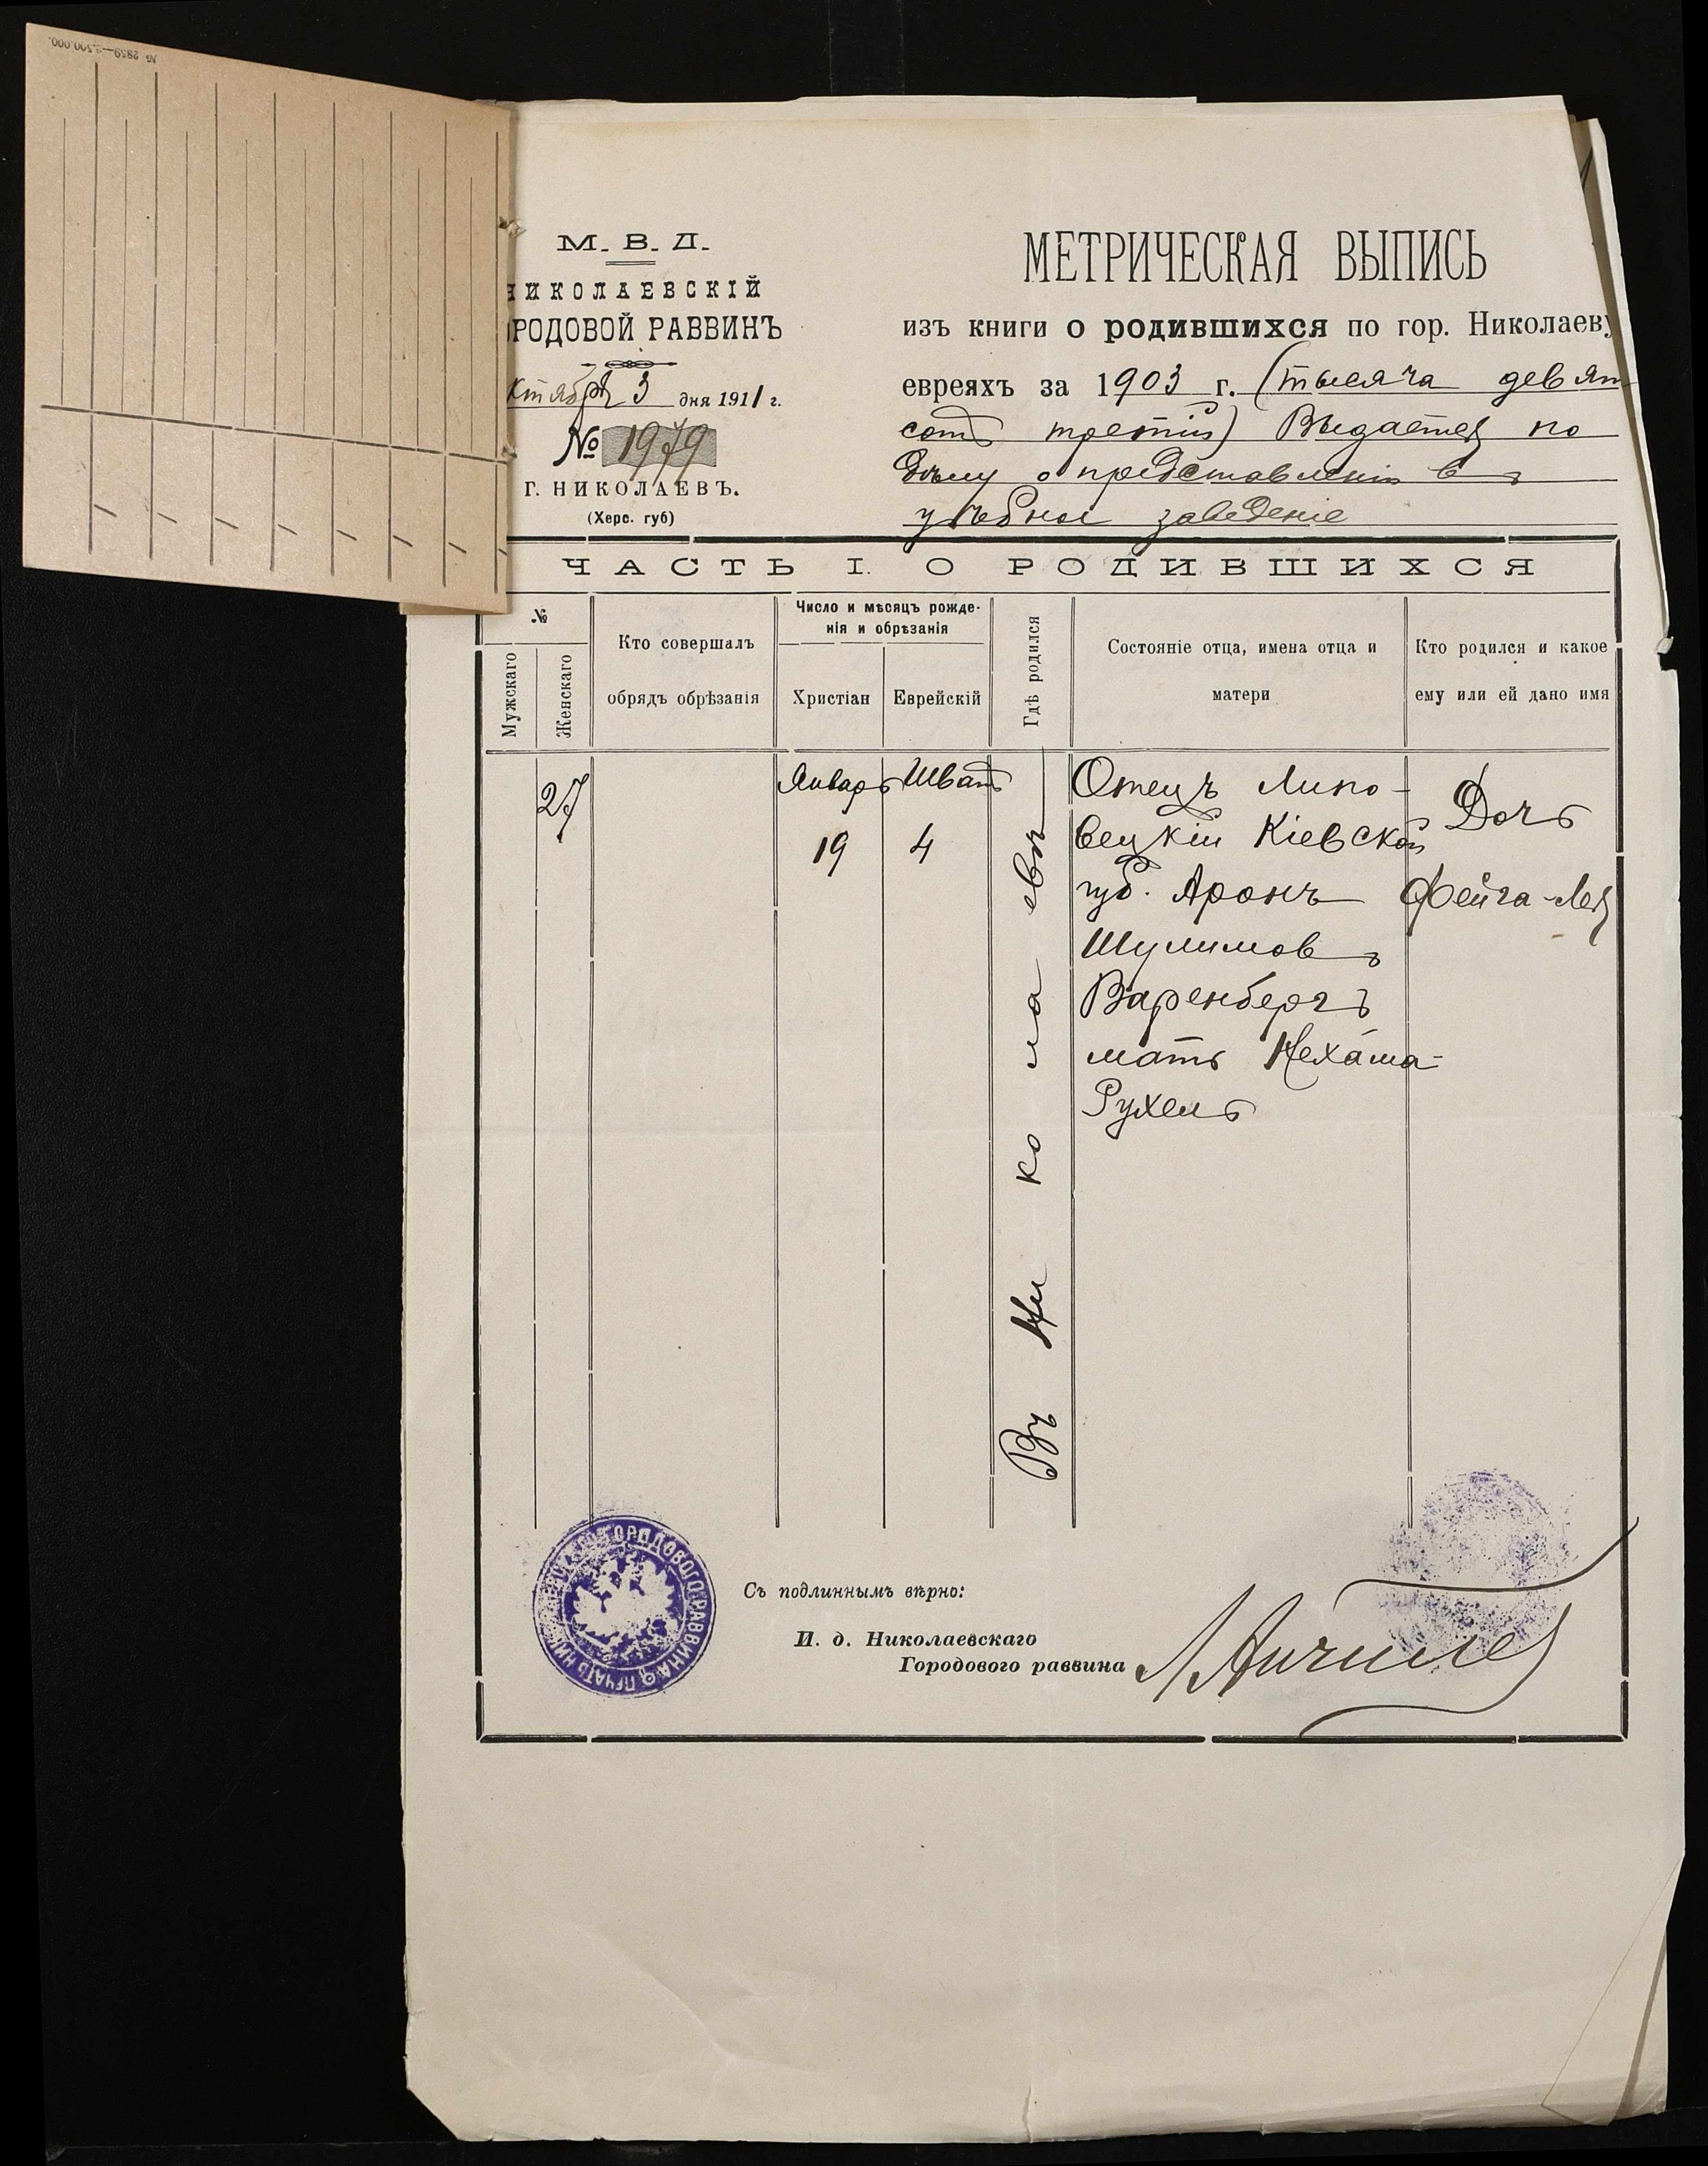 № 2839—3.500.000.
М. В. Д.
НИКОЛАЕВСКІЙ
ОРОДОВОЙ РАВВИНЪ
ктября 3 дня 1911 г.
№ 1979
Г. НИКОЛАЕВЪ.
(Херс. губ)
МЕТРИЧЕСКАЯ ВЫПИСЬ
изъ книги о родившихся по гор. Николаеву
евреяхъ за 1903 г. (тысяча девят
сотъ третій) Выдается по
дѣлу о представленіи въ
учебное заведеніе
ЧАСТЬ I. О РОДИВШИХСЯ
№
Мужскаго
Женскаго
Кто совершалъ
обрядъ обрѣзанія
Число и мѣсяцъ рожде-
нія и обрѣзанія
Христіан
Еврейскій
Гдѣ родился
Состояніе отца, имена отца и
матери
Кто родился и какое
ему или ей дано имя
27
Январь
19
Шватъ
4
Въ Николаевѣ
Отецъ Липо-
вецкій Кіевской
губ. Аронъ
Шулимовъ
Варенбергъ
мать Нехама-
Рухель
Дочь
Фейга-Лея
Съ подлиннымъ вѣрно:
И. д. Николаевскаго
Городового раввина
ГОРОДОВОГО РАВВИНА ПЕЧАТЬ